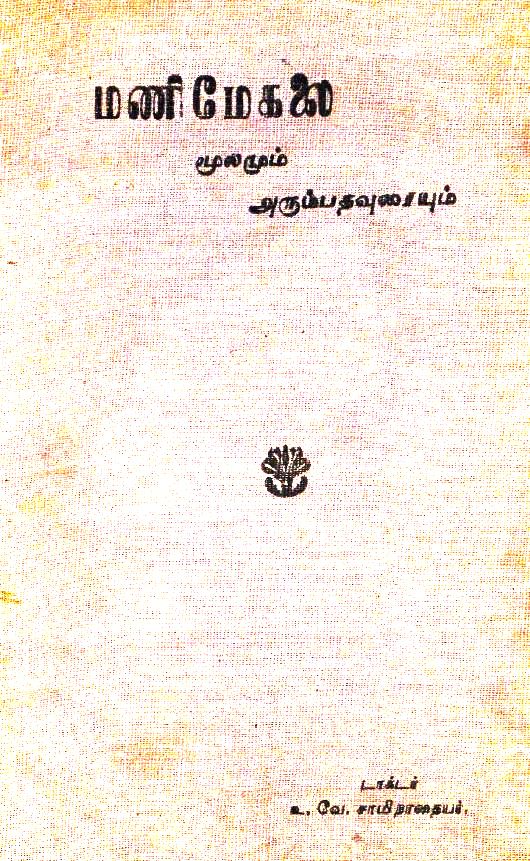 மணிமேகலை
மூலமும்
அரும்பதவுரையும்
டாக்டர்
உ. வே. சாமிநாதையர்,